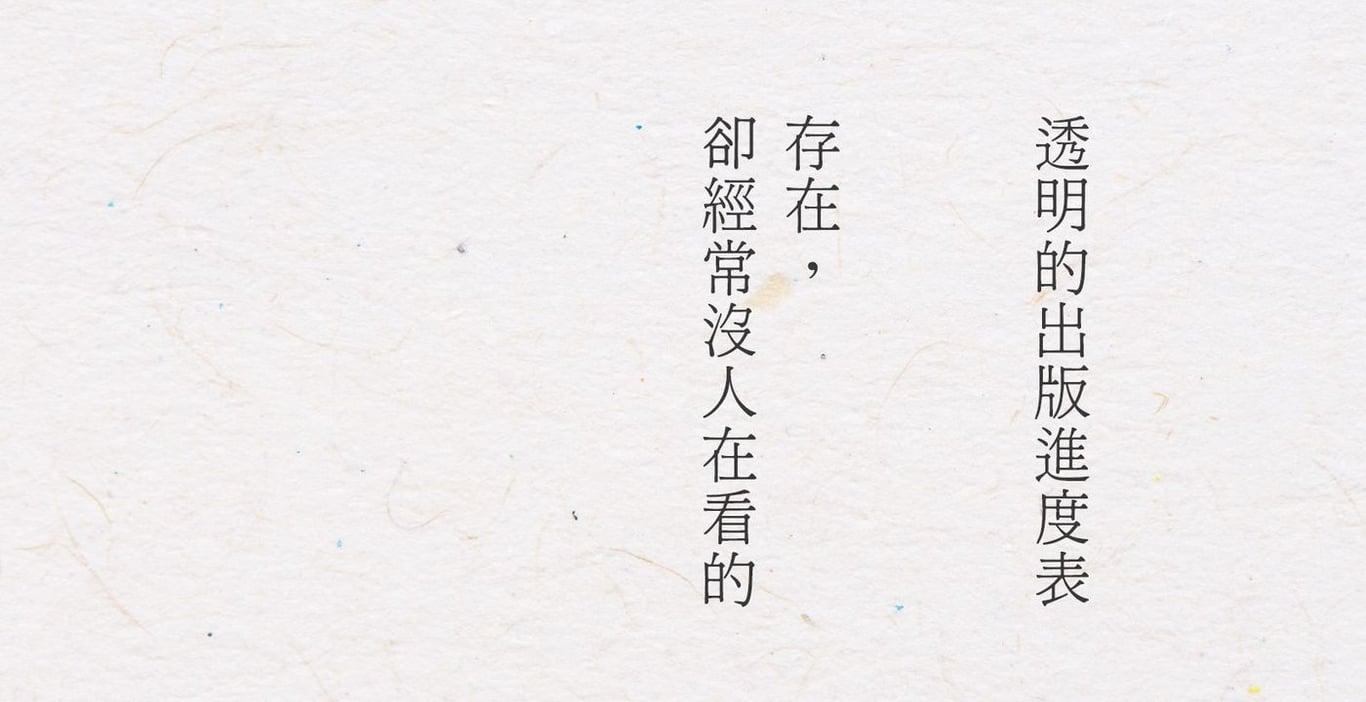 透明的出版進度表
存在，
卻經常沒人在看的